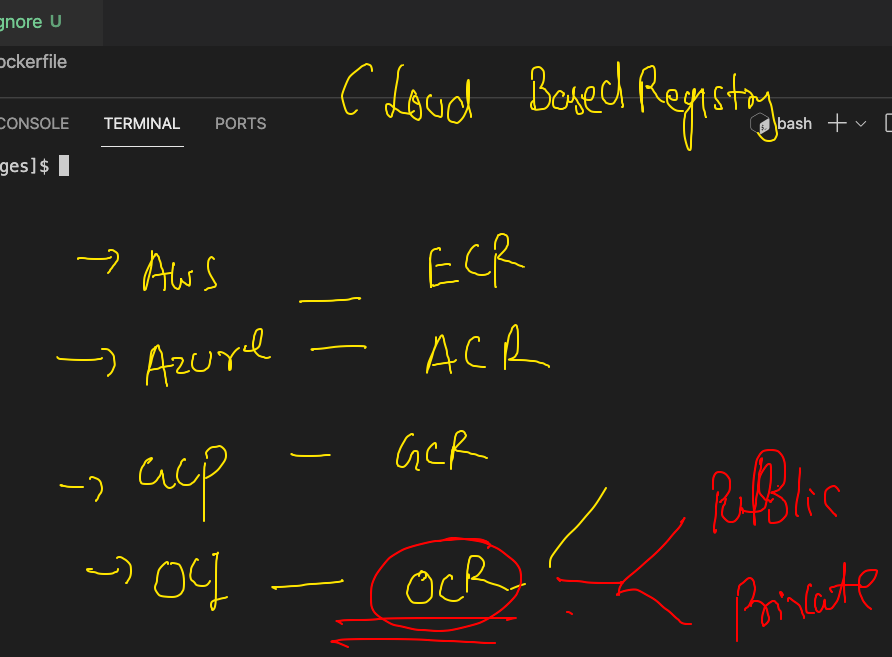 gnore U
ockerfile
CLoud Based Registry
CONSOLE TERMINAL PORTS bash
ges]$
→ AWS — ECR
→ Azure — ACR
→ GCP — GCR
→ OCI — OCR
Public
Private